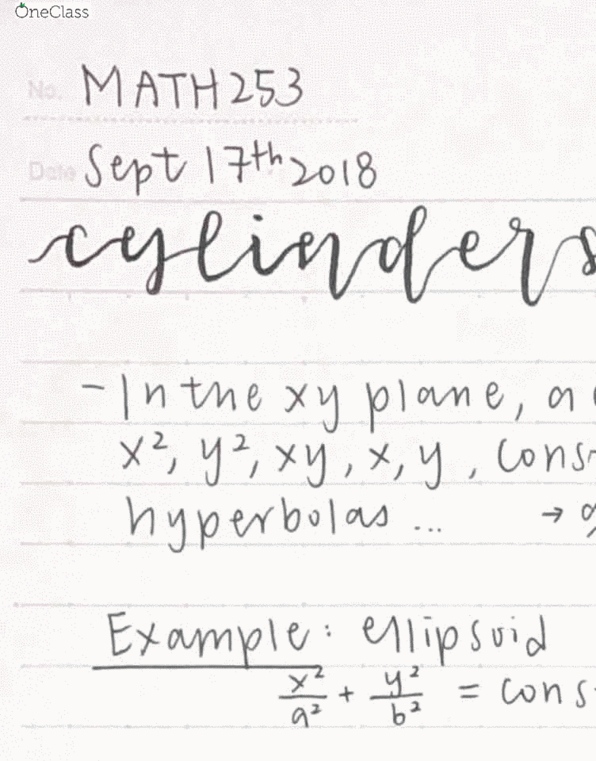 OneClass
No. MATH 253
Date Sept 17th 2018
cylinders
- In the xy plane, a
x², y², xy, x, y, cons
hyperbolas ... →
Example: ellipsoid
x²/a² + y²/b² = cons